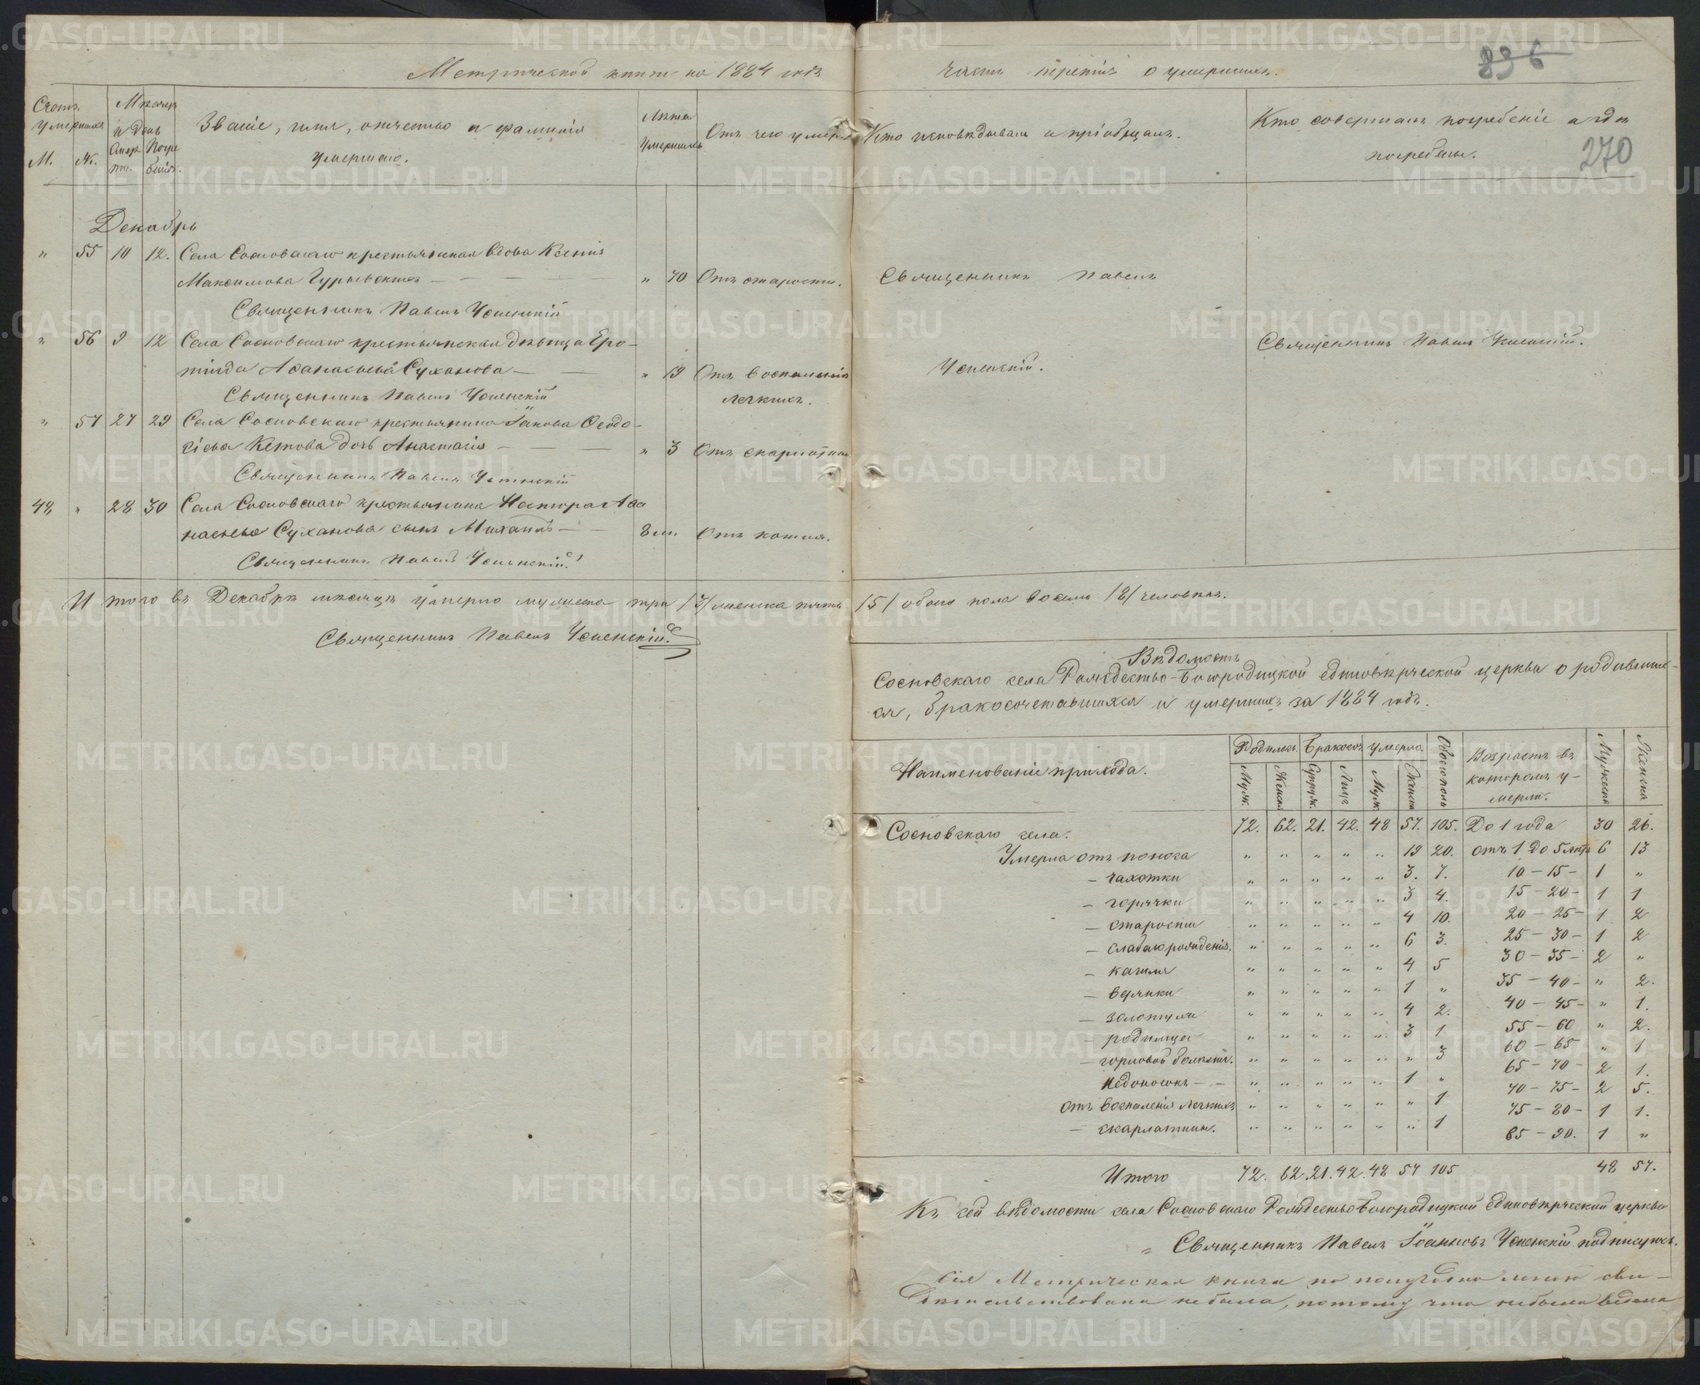 Метрической книги на 1884 годъ
часть третія о умершихъ.
896
270
Счетъ умершихъ
М. Ж.
Мѣсяцъ и день
Смер ти. Погре бенія.
Званіе, имя, отчество и фамилія
умершаго.
Лѣта умершихъ
Отъ чего умеръ
Кто исповѣдывалъ и пріобщалъ.
Кто совершалъ погребеніе и гдѣ
погребены.
Декабрь
" 55 10 12. Села Сосновскаго крестьянская вдова Ксенія
Максимова Гурьевскихъ — " 70 Отъ старости.
Священникъ Павелъ
Священникъ Павелъ Успенскій
" 56 9 12 Села Сосновскаго крестьянская дѣвица Еро-
Священникъ Павелъ Успенскій.
тиида Аѳанасьева Суханова — " 19 Отъ воспаленія
Успенскій.
Священникъ Павелъ Успенскій
легкихъ.
" 57 27 29 Села Сосновскаго крестьянина Іакова Ѳедо-
сіева Кетова дочь Анастасія — " 3 Отъ скарлатины
Священникъ Павелъ Успенскій
48 " 28 30 Села Сосновскаго крестьянина Нестора Аѳа
насьева Суханова сынъ Михаилъ — 8 м. Отъ кашля.
Священникъ Павелъ Успенскій.
Итого въ Декабрѣ мѣсяцѣ умерло мужеска три /3/ женска пять /5/ обоего пола восемь /8/ человѣкъ.
Священникъ Павелъ Успенскій.
Вѣдомость
Сосновскаго села Рождество-Богородицкой единовѣрческой церкви о родивших-
ся, бракосочетавшихся и умершихъ за 1884 годъ.
Наименованіе прихода.
Родилось Бракосоч умерло Обоего полъ
Муж. Женск Супруж. Лицъ Муж. Женск
Возрастъ въ
которомъ у-
мерли.
Мужеска Женска
Сосновскаго села. 72. 62. 21. 42. 48 57. 105. До 1 года 30 26.
Умерло отъ поноса " " " " " 19 20. отъ 1 до 5 лѣтъ 6 13
— чахотки " " " " " 3. 7. 10 — 15 — 1 "
— горячки " " " " " 3 4. 15 — 20 — 1 1
— старости " " " " " 4 10. 20 — 25 — 1 2
— слабаго рожденія. " " " " " 6 3. 25 — 30 — 1 2
— кашля " " " " " 4 5 30 — 35 — 2 "
— водянки " " " " " 1 " 35 — 40 — " 2.
— золотухи " " " " " 4 2. 40 — 45 — " 1.
— родимца " " " " " 3 1 55 — 60 " 2.
— горловой болѣзни. " " " " " " 3 60 — 65 — " 1
недоносокъ — " " " " " 1 " 65 — 70 — 2 1.
отъ воспаленія легкихъ " " " " " " 1 70 — 75 — 2 5.
— скарлатины. " " " " " " 1 75 — 80 — 1 1.
85 — 90. 1 "
Итого 72. 62. 21. 42. 48 57 105 48 57.
Къ сей вѣдомости села Сосновскаго Рождество Богородицкой единовѣрческой церкви
Священникъ Павелъ Іоанновъ Успенскій подписуюсь.
Сія Метрическая книга по полугодно мною сви-
дѣтельствована не была, потому что не была ведена
METRIKI.GASO-URAL.RU